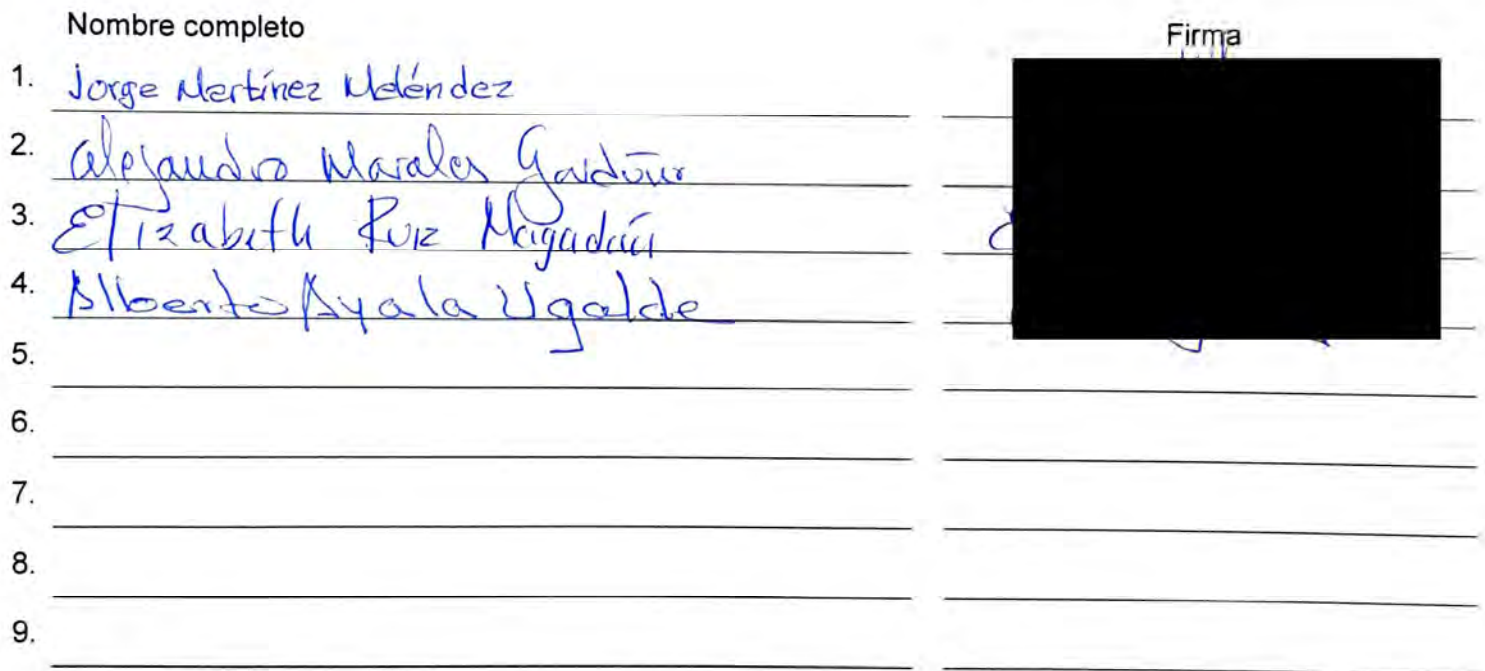 Nombre completo Firma
1. Jorge Martínez Meléndez
2. Alejandro Morales Garduño
3. Elizabeth Ruiz Magadán
4. Alberto Ayala Ugalde
5.
6.
7.
8.
9.